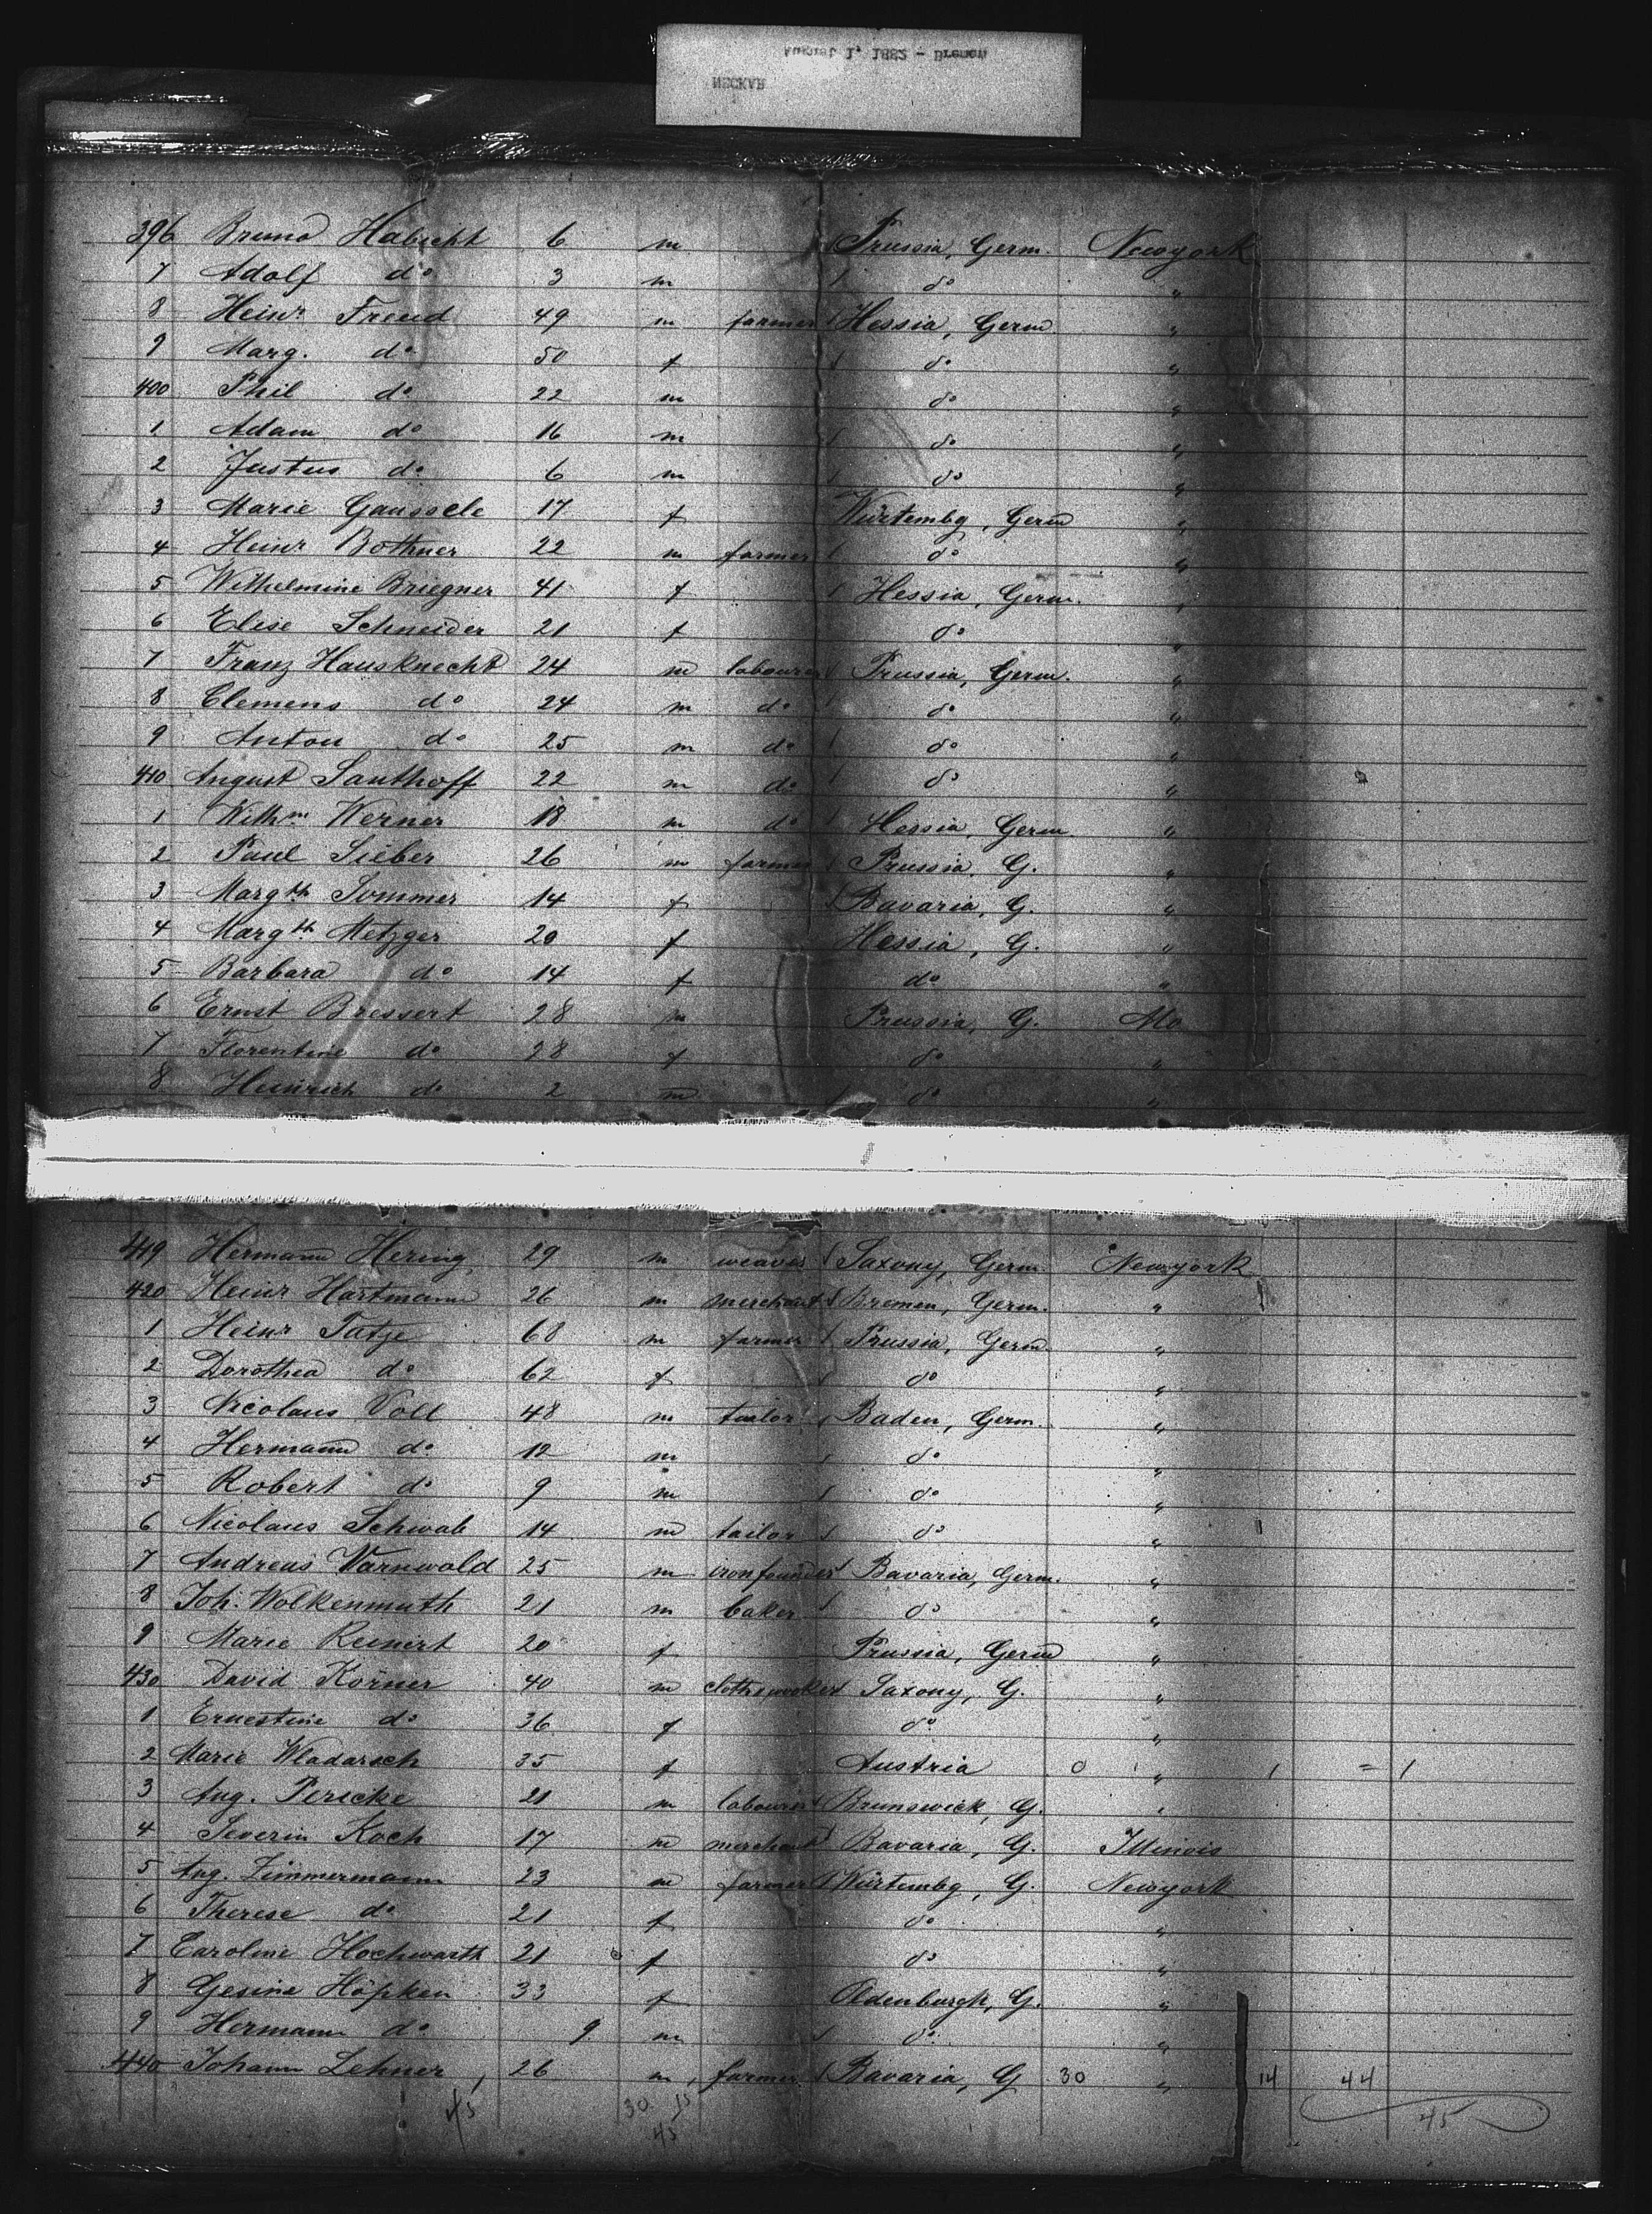 August 1, 1882 - Bremen
NECKAR
396 Bruno Habicht 6 m Prussia, Germ. Newyork
7 Adolf do 3 m do "
8 Heinr. Freud 49 m farmer Hessia, Germ "
9 Marg. do 50 f do "
400 Phil do 22 m do "
1 Adam do 16 m do "
2 Justus do 6 m do "
3 Marie Gaussele 17 f Würtembg, Germ "
4 Heinr Bothner 22 m farmer do "
5 Wilhelmine Briegner 41 f Hessia, Germ. "
6 Elise Schneider 21 f do "
7 Franz Hausknecht 24 m labourer Prussia, Germ. "
8 Clemens do 24 m do do "
9 Anton do 25 m do do "
410 August Santhoff 22 m do do "
1 Wilhm Werner 18 m do Hessia, Germ "
2 Paul Sieber 26 m farmer Prussia, G. "
3 Margth Sommer 14 f Bavaria, G. "
4 Margth Metzger 20 f Hessia, G. "
5 Barbara do 14 f do "
6 Ernst Bressert 28 m Prussia, G. Mo
7 Florentine do 28 f do "
8 Heinrich do 2 m do "
419 Hermann Hering 29 m weaver Saxony, Germ Newyork
420 Heinr Hartmann 26 m merchant Bremen, Germ. "
1 Heinr Tatje 68 m farmer Prussia, Germ "
2 Dorothea do 62 f do "
3 Nicolaus Voll 48 m tailor Baden, Germ. "
4 Hermann do 12 m do "
5 Robert do 9 m do "
6 Nicolaus Schwab 14 m tailor do "
7 Andreas Warnwald 25 m ironfounder Bavaria, Germ. "
8 Joh. Wolkenmuth 21 m baker do "
9 Marie Reinert 20 f Prussia, Germ "
430 David Körner 40 m Saxony, G. "
1 Ernestine do 36 f do "
2 Marie Wladarsch 35 f Austria 0 " 1 = 1
3 Aug. Pericke 21 m labourer Brunswick, G. "
4 Severin Koch 17 m merchant Bavaria, G. Illinois
5 Aug. Zimmermann 23 m farmer Würtembg, G. Newyork
6 Therese do 21 f do "
7 Caroline Hochwarth 21 f do "
8 Gesine Höpken 33 f Oldenburgh, G. "
9 Hermann do 9 m do "
440 Johann Lehner, 26 m, farmer Bavaria, G 30 " 14 44
45 30 15 45
45